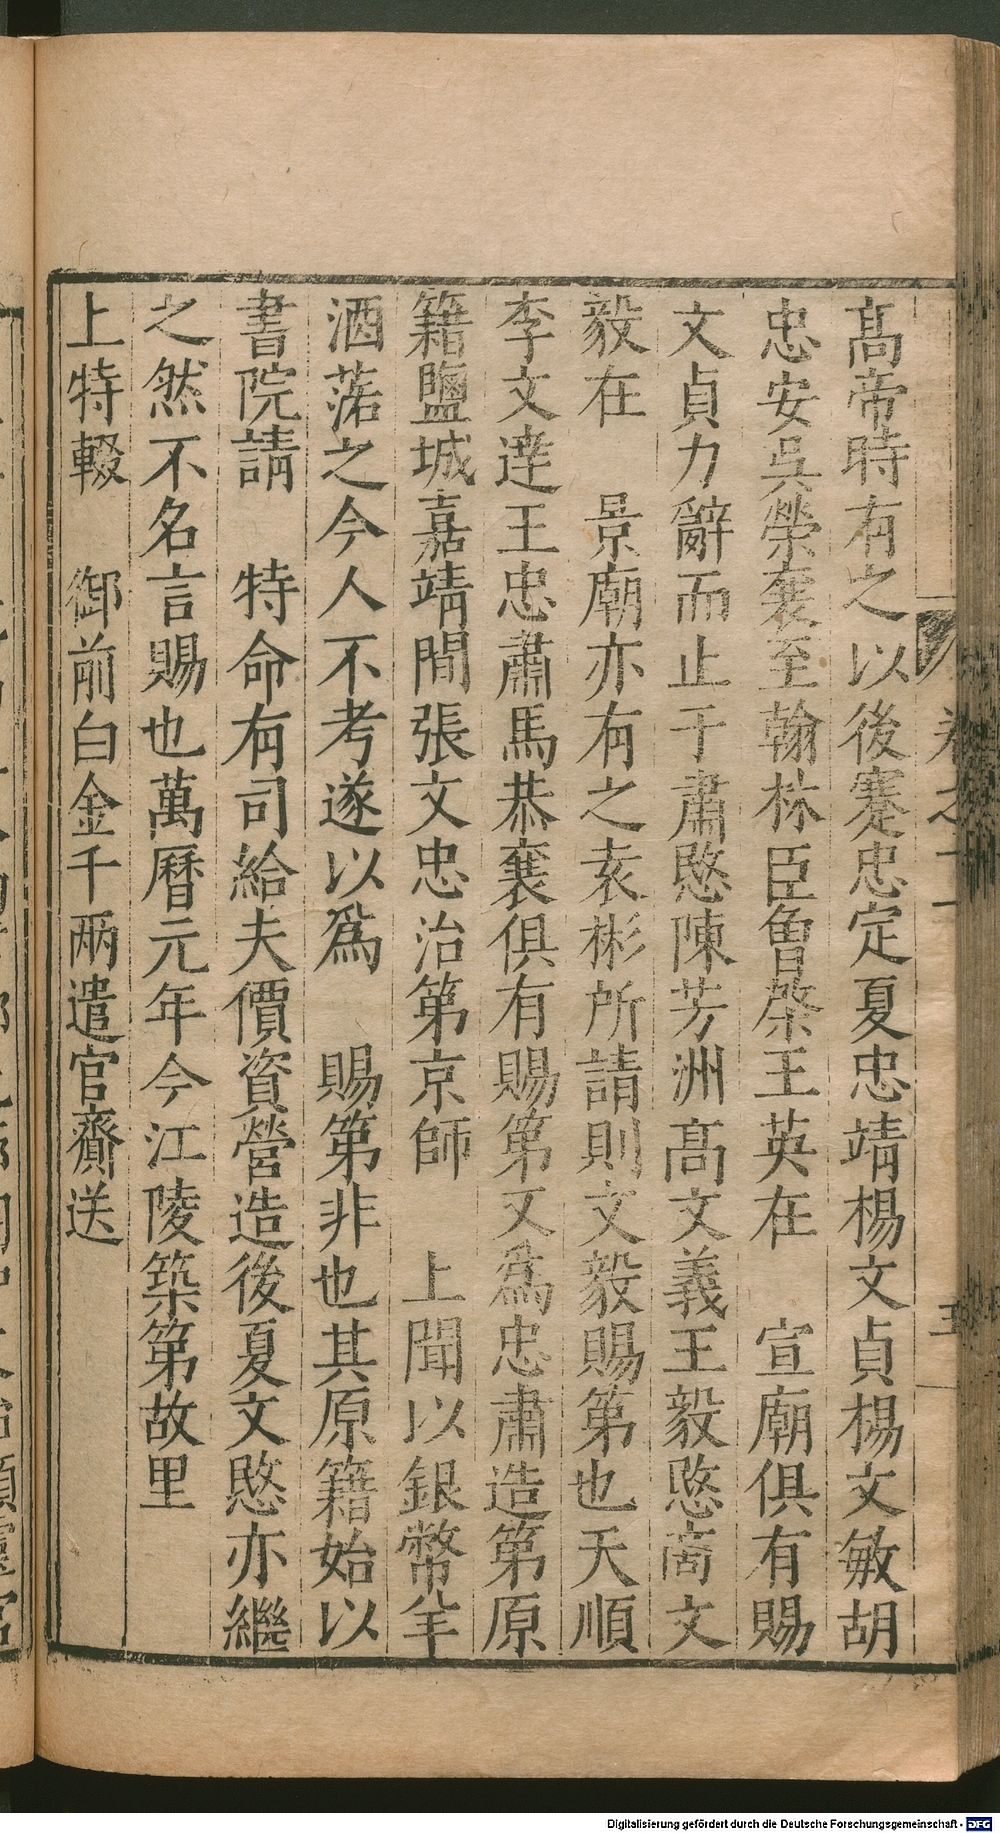 卷之二
五
髙帝時有之以後蹇忠定夏忠靖楊文貞楊文敏胡
忠安吳榮襄至翰林臣曾棨王英在　宣廟俱有賜
文貞力辭而止于肅愍陳芳洲髙文義王毅愍商文
毅在　景廟亦有之袁彬所請則文毅賜第也天順
李文達王忠肅馬恭襄俱有賜第又爲忠肅造第原
籍鹽城嘉靖間張文忠治第京師　上聞以銀幣羊
酒落之今人不考遂以爲　賜第非也其原籍始以
書院請　特命有司給夫價資營造後夏文愍亦繼
之然不名言賜也萬曆元年今江陵築第故里
上特輟　御前白金千兩遣官齎送
Digitalisierung gefördert durch die Deutsche Forschungsgemeinschaft - DFG